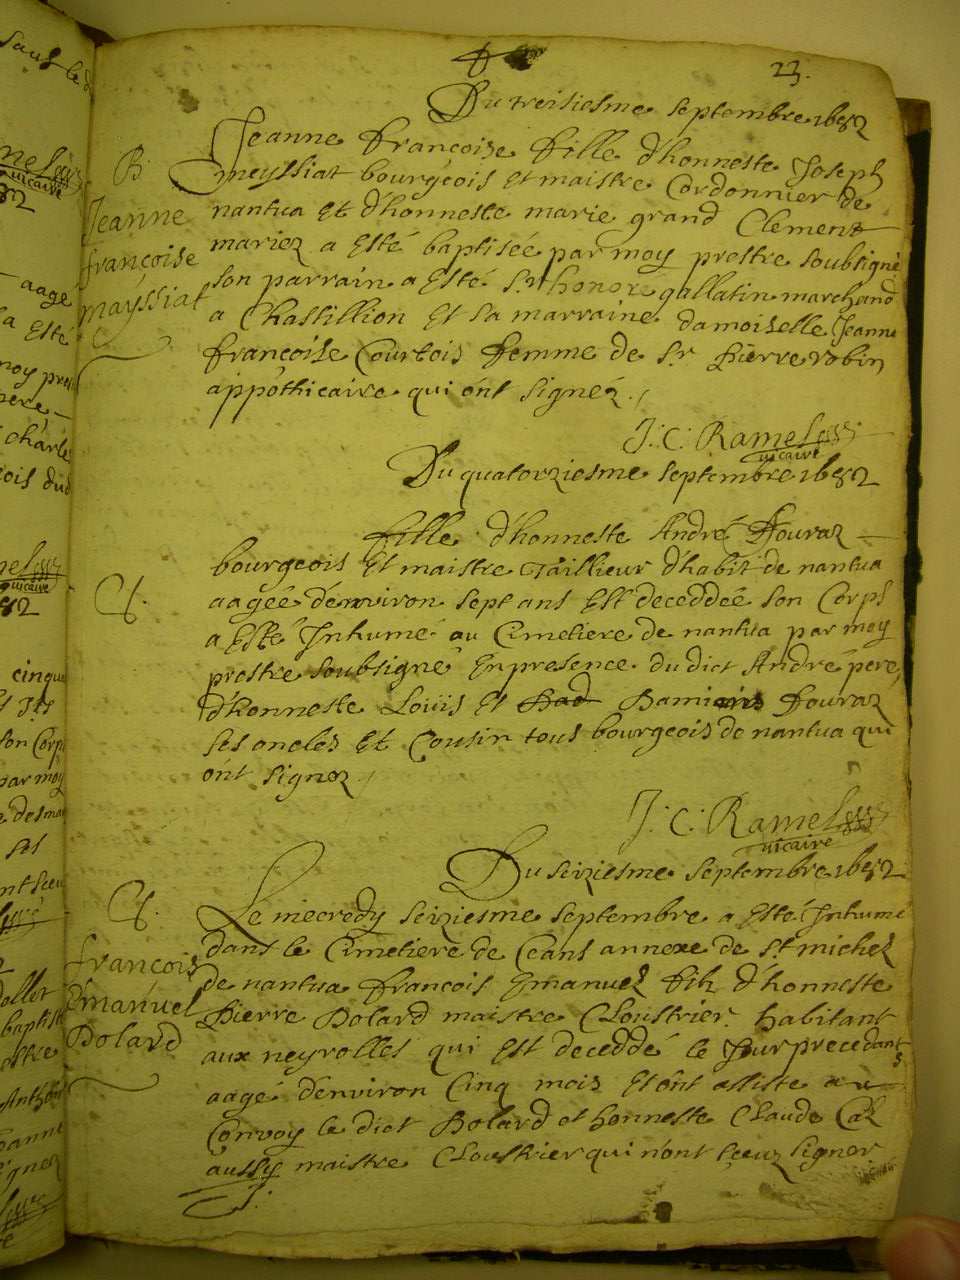 23.
Du treisiesme septembre 1682
B.
Jeanne
françoise
mayssiat
Jeanne françoise fille d'honneste Joseph
meyssiat bourgeois et maistre Cordonnier de
nantua et d'honneste marie grand Clement
mariez a esté baptisée par moy prestre soubsigné
son parrain a esté sr honoré gallatin marchand
a Chastillion et sa marraine damoiselle Jeanne
françoise Courtois femme de Sr. pierre robin
appothicaire qui ont signéz.
J: C: Ramel
vicaire
Du quatorziesme septembre 1682
fille d'honneste André fouraz
bourgeois et maistre Taillieur d'habit de nantua
aagée d'environ sept ans est deceddée son Corps
a esté Inhumé au Cimetiere de nantua par moy
prestre soubsigné en presence du dict André pere,
d'honneste Loüis et fouraz
ses oncles et Cousin tous bourgeois de nantua qui
ont signez
J: C: Ramel
vicaire
Du seiziesme septembre 1682
françois
Emanuel
Bolard
Le mecredy seiziesme septembre a esté Inhumé
dans le Cimetiere de Ceans annexe de St. michel
de nantua françois Emanuel filz d'honneste
pierre Bolard maistre Cloustrier habitant
aux neyrolles qui est deceddé le Jour precedant
aagé d'environ Cinq mois et ont assisté au
Convoy le dict Bolard et honneste Claude
aussy maistre Cloustrier qui n'ont sceuz signer